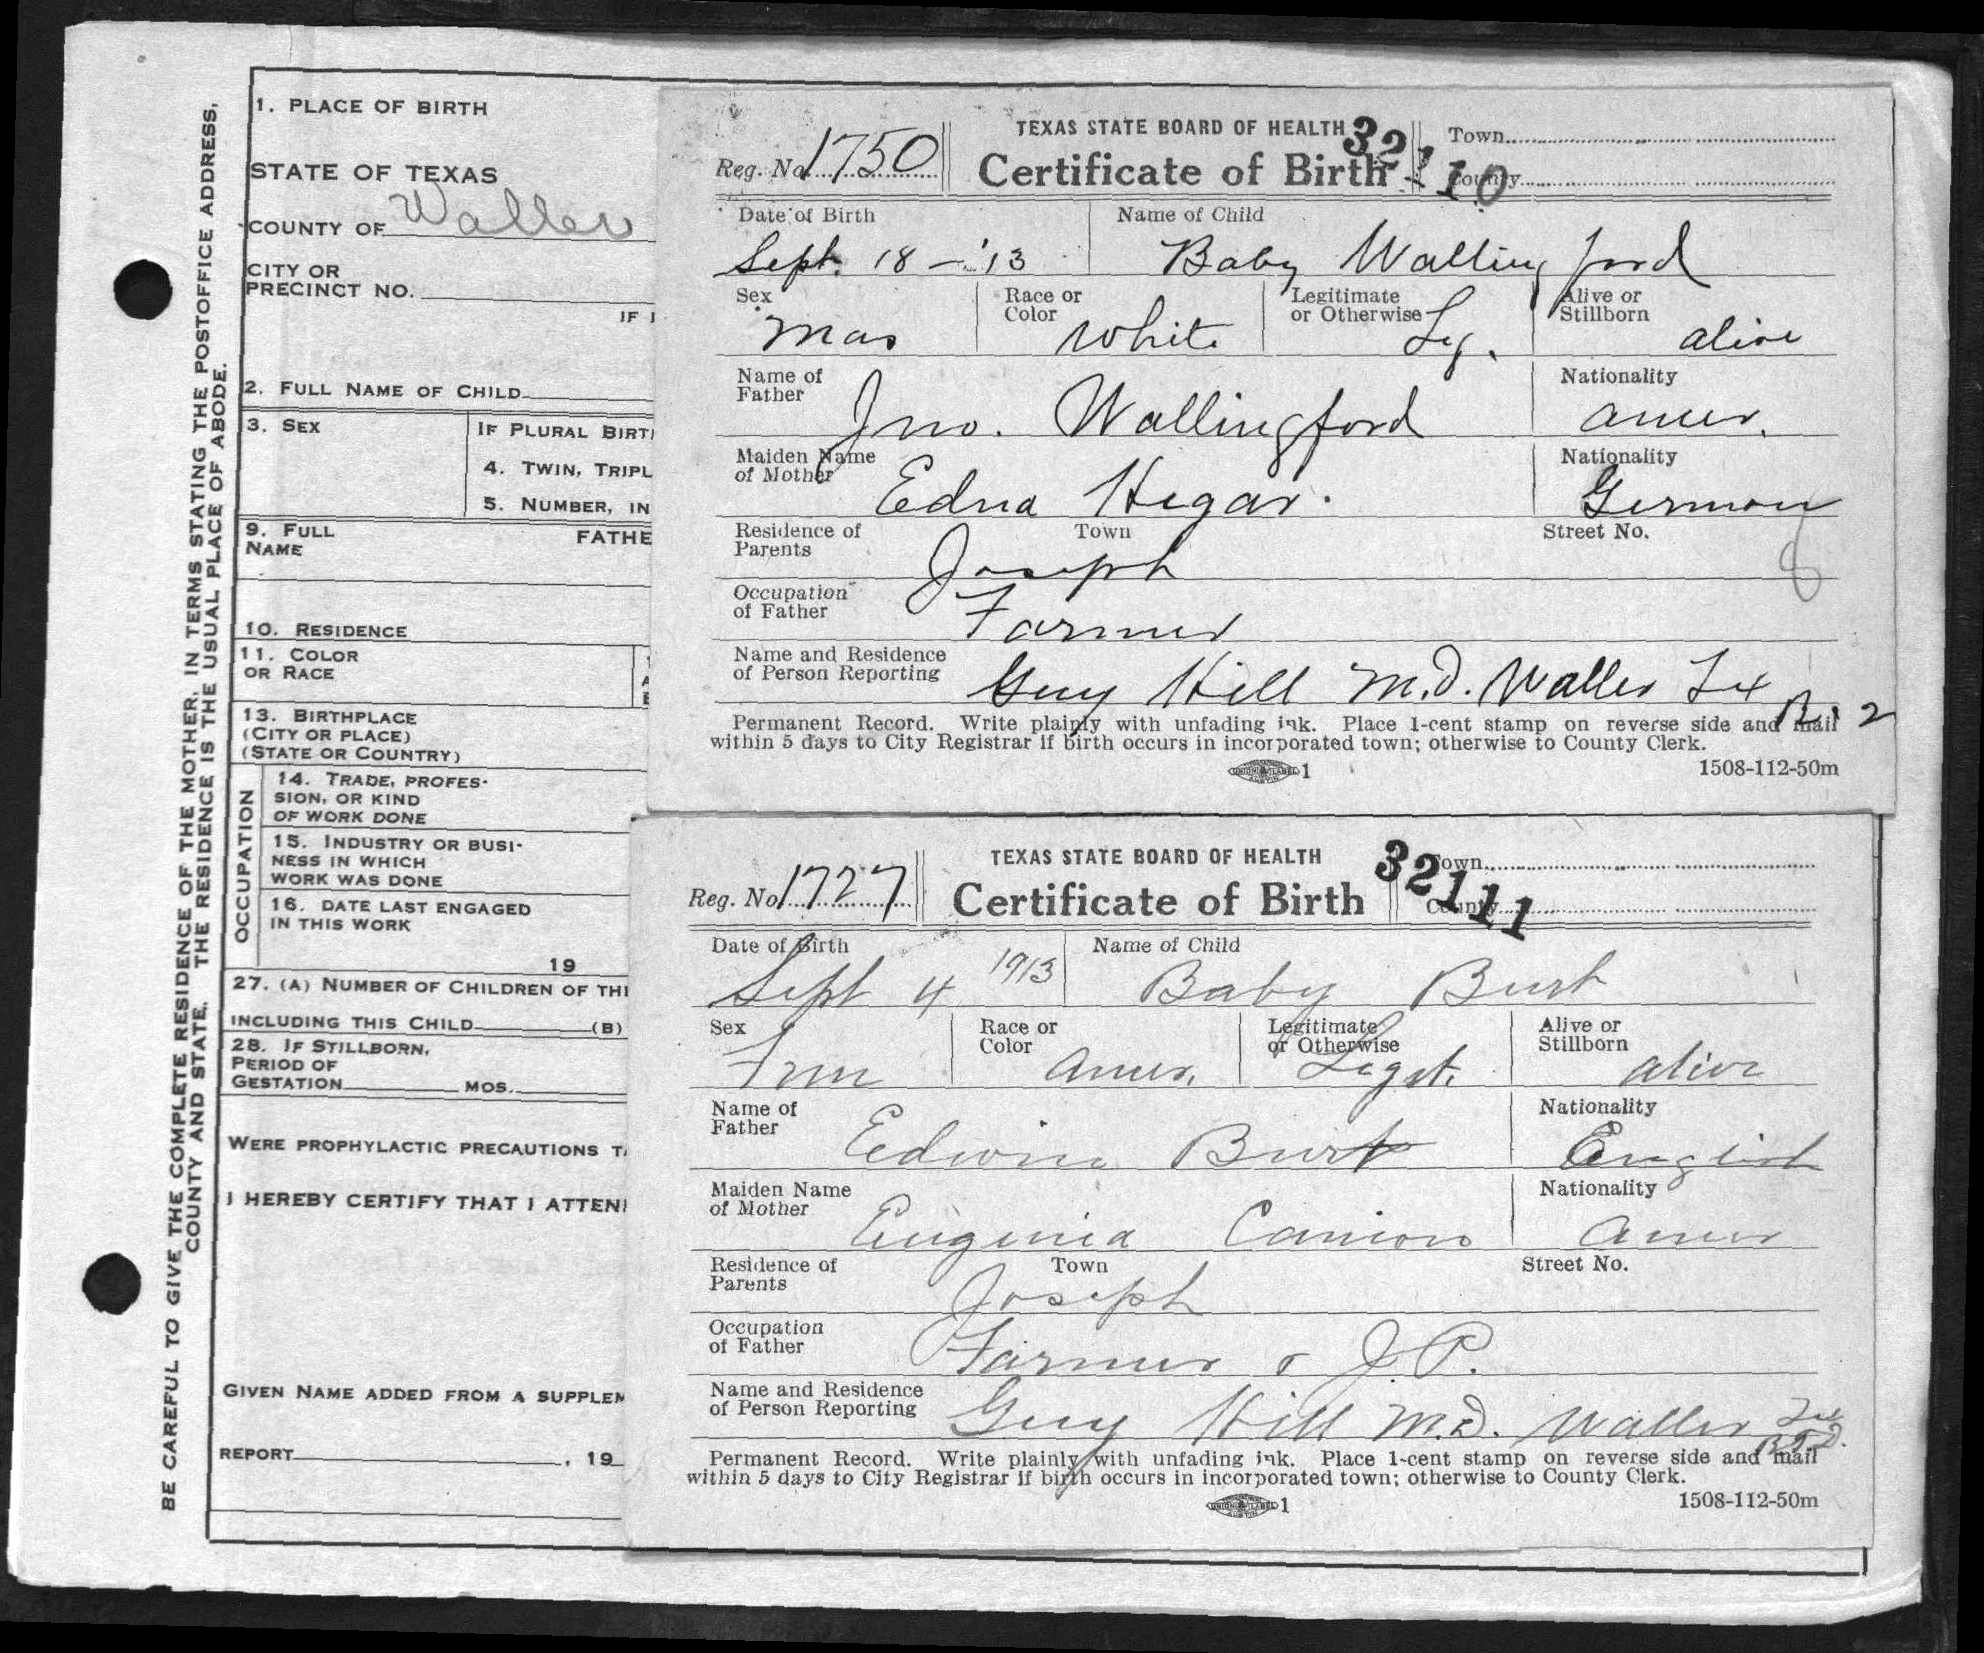 BE CAREFUL TO GIVE THE COMPLETE RESIDENCE OF THE MOTHER, IN TERMS STATING THE POSTOFFICE ADDRESS,
COUNTY AND STATE. THE RESIDENCE IS THE USUAL PLACE OF ABODE.
1. PLACE OF BIRTH
STATE OF TEXAS
COUNTY OF Waller
CITY OR
PRECINCT NO.
IF
2. FULL NAME OF CHILD
3. SEX
IF PLURAL BIRT
4. TWIN, TRIPL
5. NUMBER, IN
9. FULL
NAME
FATHE
10. RESIDENCE
11. COLOR
OR RACE
13. BIRTHPLACE
(CITY OR PLACE)
(STATE OR COUNTRY)
OCCUPATION
14. TRADE, PROFES-
SION, OR KIND
OF WORK DONE
15. INDUSTRY OR BUSI-
NESS IN WHICH
WORK WAS DONE
16. DATE LAST ENGAGED
IN THIS WORK
19
27. (A) NUMBER OF CHILDREN OF THI
INCLUDING THIS CHILD (B)
28. IF STILLBORN,
PERIOD OF
GESTATION MOS.
WERE PROPHYLACTIC PRECAUTIONS T
I HEREBY CERTIFY THAT I ATTEN
GIVEN NAME ADDED FROM A SUPPLEM
REPORT , 19
TEXAS STATE BOARD OF HEALTH
32110
Town
Reg. No. 1750
Certificate of Birth
County
Date of Birth
Name of Child
Sept. 18 - '13
Baby Wallingford
Sex
Race or
Color
Legitimate
or Otherwise
Alive or
Stillborn
Mas
White
Leg.
alive
Name of
Father
Nationality
Jno. Wallingford
amer.
Maiden Name
of Mother
Nationality
Edna Hegar.
German
Residence of
Parents
Town
Street No.
Joseph
8
Occupation
of Father
Farmer
Name and Residence
of Person Reporting
Guy Hill M.D. Waller Tex
R. 2
Permanent Record. Write plainly with unfading ink. Place 1-cent stamp on reverse side and mail
within 5 days to City Registrar if birth occurs in incorporated town; otherwise to County Clerk.
1
1508-112-50m
TEXAS STATE BOARD OF HEALTH
32111
Town
Reg. No. 1727
Certificate of Birth
County
Date of Birth
Name of Child
Sept 4 1913
Baby Burt
Sex
Race or
Color
Legitimate
or Otherwise
Alive or
Stillborn
Fem
Amer.
Legt.
alive
Name of
Father
Nationality
Edwin Burt
English
Maiden Name
of Mother
Nationality
Eugenia Canion
Amer
Residence of
Parents
Town
Street No.
Joseph
Occupation
of Father
Farmer & J.P.
Name and Residence
of Person Reporting
Guy Hill M.D. Waller Tex
Permanent Record. Write plainly with unfading ink. Place 1-cent stamp on reverse side and mail
within 5 days to City Registrar if birth occurs in incorporated town; otherwise to County Clerk.
1
1508-112-50m